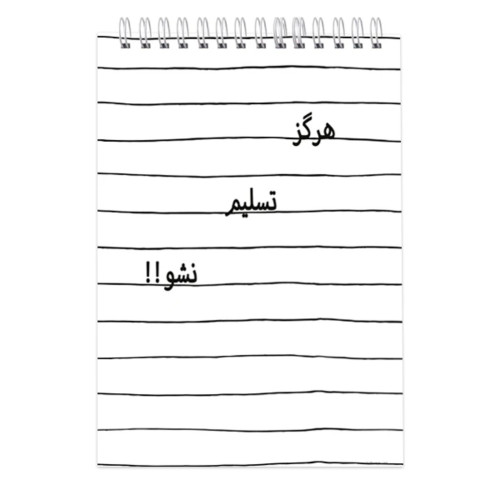 هرگز
تسلیم
نشو!!